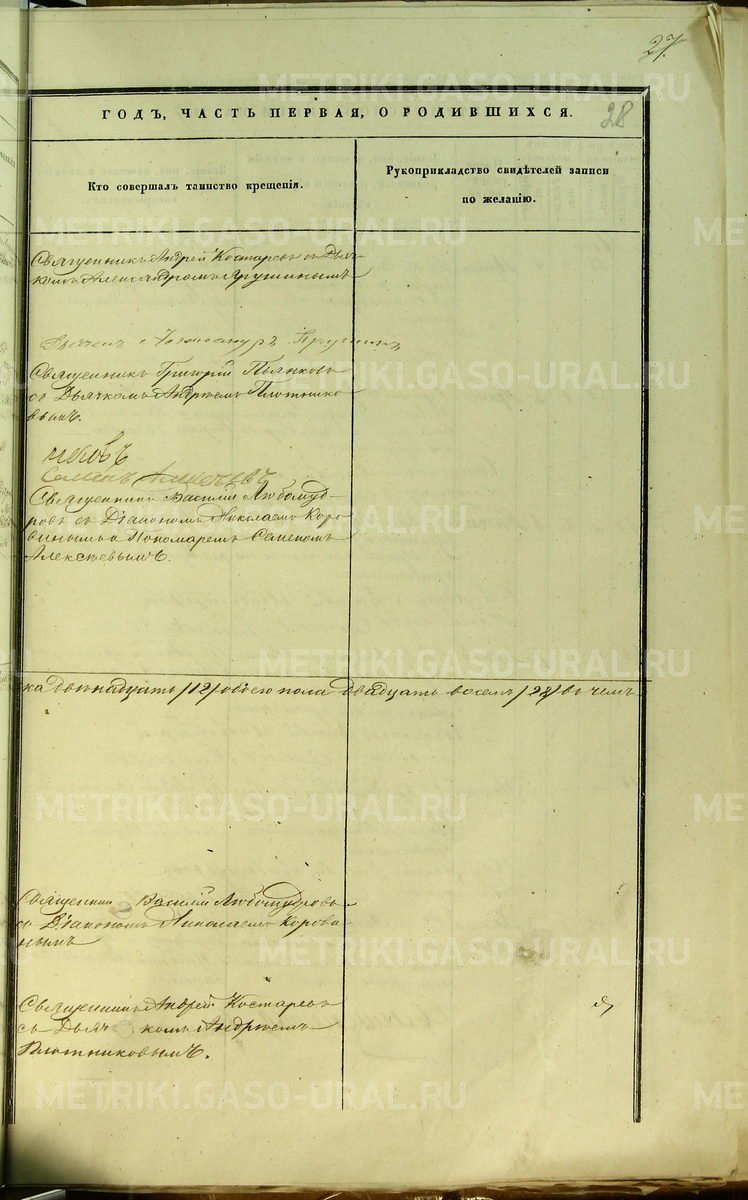 27.
28
ГОДЪ, ЧАСТЬ ПЕРВАЯ, О РОДИВШИХСЯ.
Кто совершалъ таинство крещенія.
Рукоприкладство свидѣтелей записи
по желанію.
Священникъ Андрей Костаревъ съ Дьяч-
комъ Александромъ
Александръ
Священникъ Григорій Пьянковъ
со Дьячкомъ Андреемъ Плотнико
вымъ.
Священникъ Василій Любомуд-
ровъ съ Діакономъ Николаемъ Коро
винымъ и Пономаремъ Семеномъ
Алексѣевымъ.
ка двенадцать /12/ обоего пола двадцать восемь /28/ въ чемъ
Священникъ Василій Любомудровъ
со Діакономъ Николаемъ Корови-
нымъ
Священникъ Андрей Костаревъ
съ Дьячкомъ Андреемъ
Плотниковымъ.
METRIKI.GASO-URAL.RU